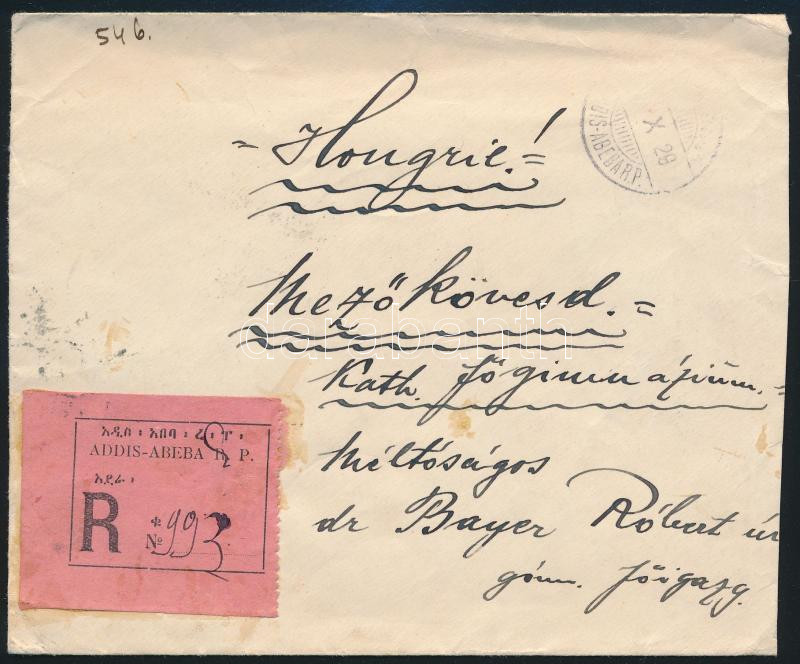 546.
DIS-ABEBA R P.
X 29
=Hongrie!=
Mezőkövesd.=
Kath. főgimnázium.=
Méltóságos
dr Bayer Róbert úr
gimn. főigazg.
አዲስ ፡ አበባ ፡ ረ ፡ ፐ ፡
ADDIS-ABEBA R. P.
አደራ ፡
R
№ 993
darabanth